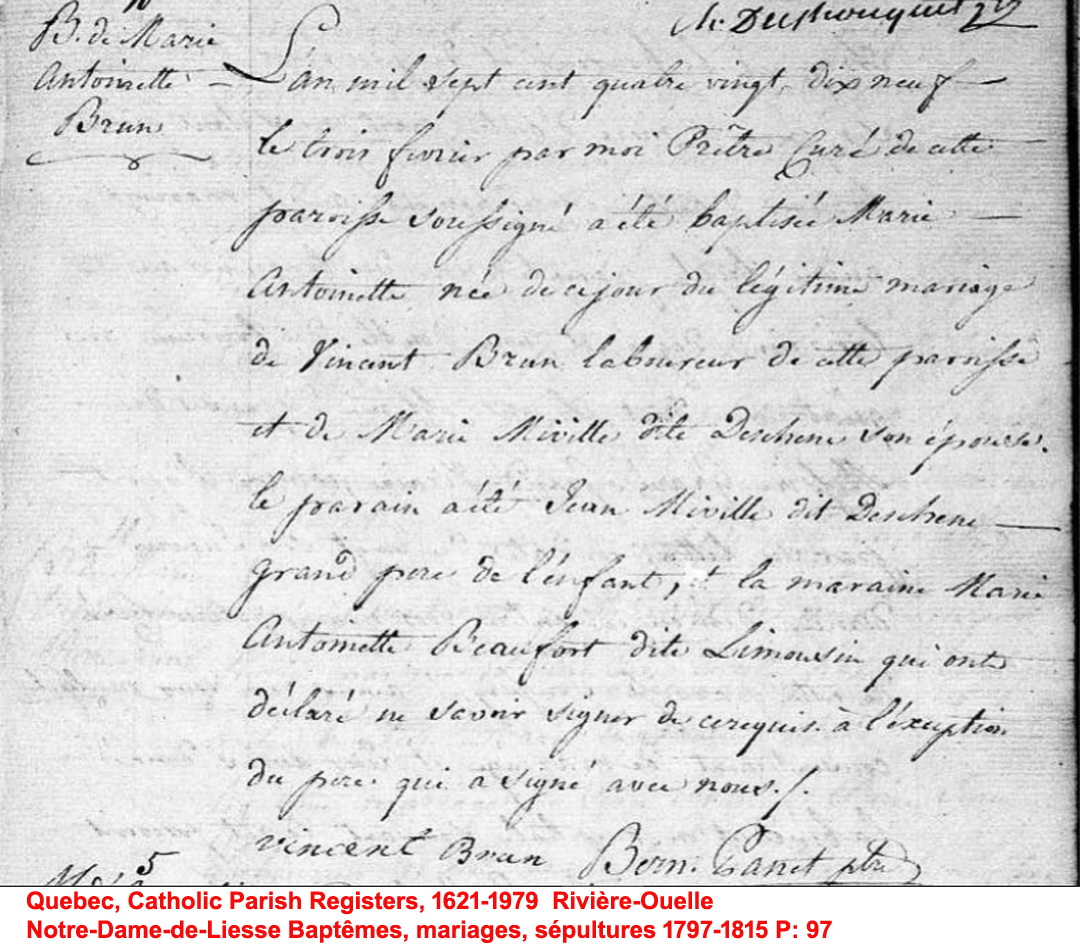 B. de Marie
Antoinette
Brun
L'an mil sept cent quatre vingt dix neuf
le trois fevrier par moi Prêtre Curé de cette
paroisse soussigné a été baptisée Marie
Antoinette née de ce jour du légitime mariage
de Vincent Brun laboureur de cette paroisse
et de Marie Miville dite Deschene son épouse.
le parain a été Jean Miville dit Deschene
grand pere de l'enfant, et la maraine Marie
Antoinette Beaufort dite Limousin qui ont
déclaré ne savoir signer de ce requis à l'exception
du pere qui a signé avec nous./.
vincent Brun Bern. Panet ptre
5
Quebec, Catholic Parish Registers, 1621-1979 Rivière-Ouelle
Notre-Dame-de-Liesse Baptêmes, mariages, sépultures 1797-1815 P: 97